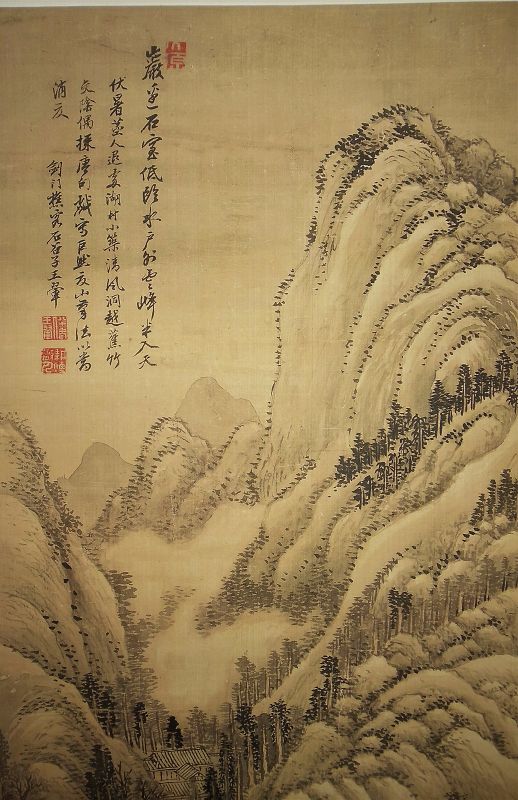 巖邊石室低臨水戶外雲峰半入天
伏暑蒸人退處湖村小築清風洞越蕉竹
交陰偶採唐句戲寫巨然夏山法以當
消夏 劍門樵客石谷子王翬